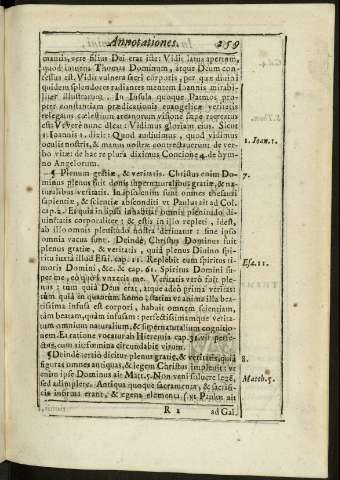 Annotationes. 259
manus, vere filius Dei erat iste: Vidit latus apertum,
quod lancea Thomas Dominum, atque Deum con-
fessus est. Vidit vulnera sacri corporis, per quæ divini
quidem splendores radiantes mentem Ioannis mirabi-
liter illustrarunt. In Insula quoque Patmos pro-
pter constantiam prædicationis euangelicæ veritatis
relegatus cœlestium arcanorum visione sæpe recreatus
est: Vt vere nunc dicat: Vidimus gloriam eius. Sicut
1. Ioannis 1. dixit: Quod audiuimus, quod vidimus
oculis nostris, & manus nostræ contrectauerunt de ver-
bo vitæ: de hac re plura diximus Concione 4. de hymno
Angelorum.
1. Ioan. 1.
¶ Plenum gestiæ, & veritatis. Christus enim Do-
minus plenus fuit donis supernaturalibus gratiæ, & na-
turalibus veritatis. In ipso enim sunt omnes thesauri
sapientiæ, & scientiæ absconditi vt Paulus ait ad Col.
cap. 2. Et quia in ipso inhabitat omnis plenitudo di-
uinitatis corporaliter: & estis in illo repleti, idest,
ab illo omnis plenitudo nostra deriuatur: sine ipso
omnia vacua sunt. Deinde, Christus Dominus fuit
plenus gratiæ, & veritatis, quia plenus Divino spi-
ritu iuxta illud Esai. cap. 11. Replebit eum spiritus ti-
moris Domini, &c. & cap. 61. Spiritus Domini su-
per me, eo quod vnxerit me. Veritatis vero fuit ple-
nus: tum quia Deus erat, atque adeo prima veritas:
tum quia in quantum homo, statim vt anima illa bea-
tissima infusa est corpori, habuit omnem scientiam,
tam beatam, quàm infusam: perfectissimamque verita-
tum omnium naturalium, & supernaturalium cognitio-
nem. Et ratione vocatur ab Hieremia cap. 31. vir perfe-
ctus, cum aït fœmina circundabit virum.
7.
Esa. 11.
¶ Deinde tertiò dicitur plenus gratiæ, & veritatis, quia
figuras omnes antiquas, & legem Christus impleuit: vt
enim ipse Dominus ait Matt. 5. Non veni soluere legē,
sed adimplere. Antiqua quoque sacramenta, & sacri-
ficia infirma erant, & egena elementa (vt Paulus ait
8.
Matth. 5.
R 2 ad Gal.